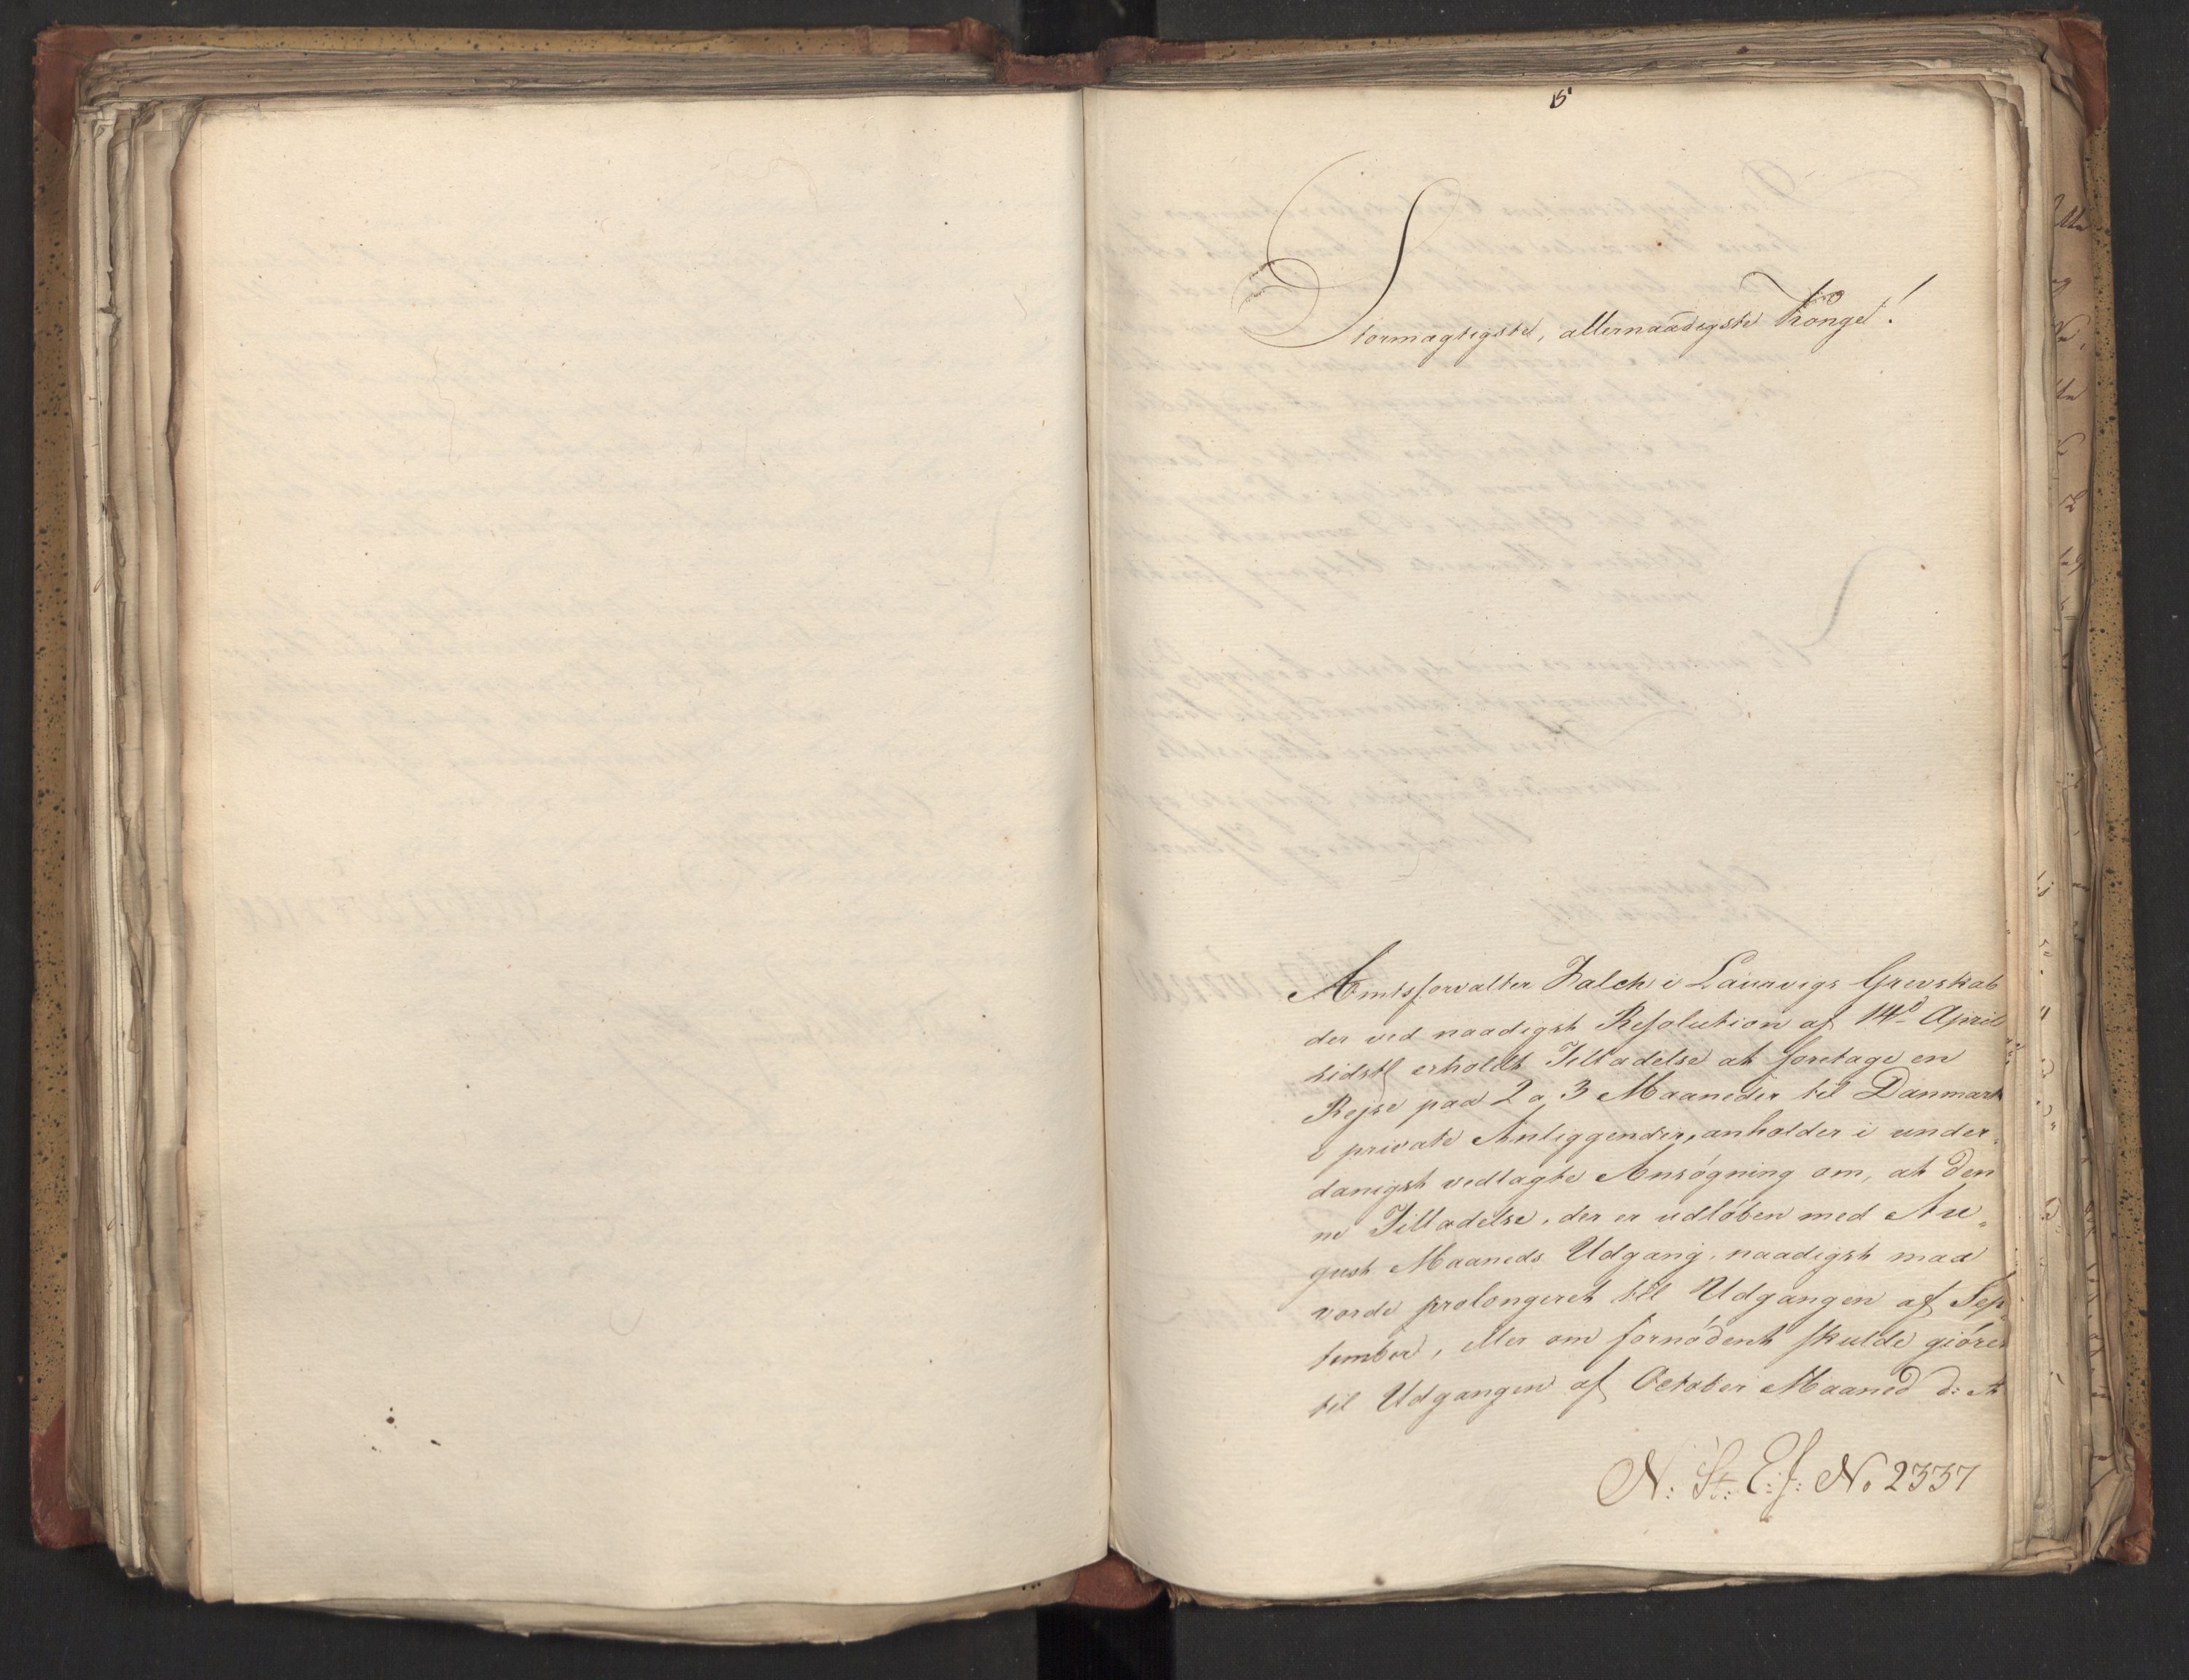 5
Stormægtigste, allernaadigste Konge!
Amtsforvalter Falch i Laurvigs Grevskab
der ved naadigst Resolution af 14d April
sidstl erholdt Tilladelse at foretage en
Rejse paa 2 a 3 Maaneder til Danmark
i private Anliggender, anholder i under,,
danigst vedlagte Ansøgning om, at den
ne Tilladelse, der er udløben med Au,,
gust Maaneds Udgang, naadigst maa
vorde prolongeret til Udgangen af Sep,,
tember, eller om fornødent skulde giøres
til Udgangen af October Maaned d: A
N: St: E: J: No 2337